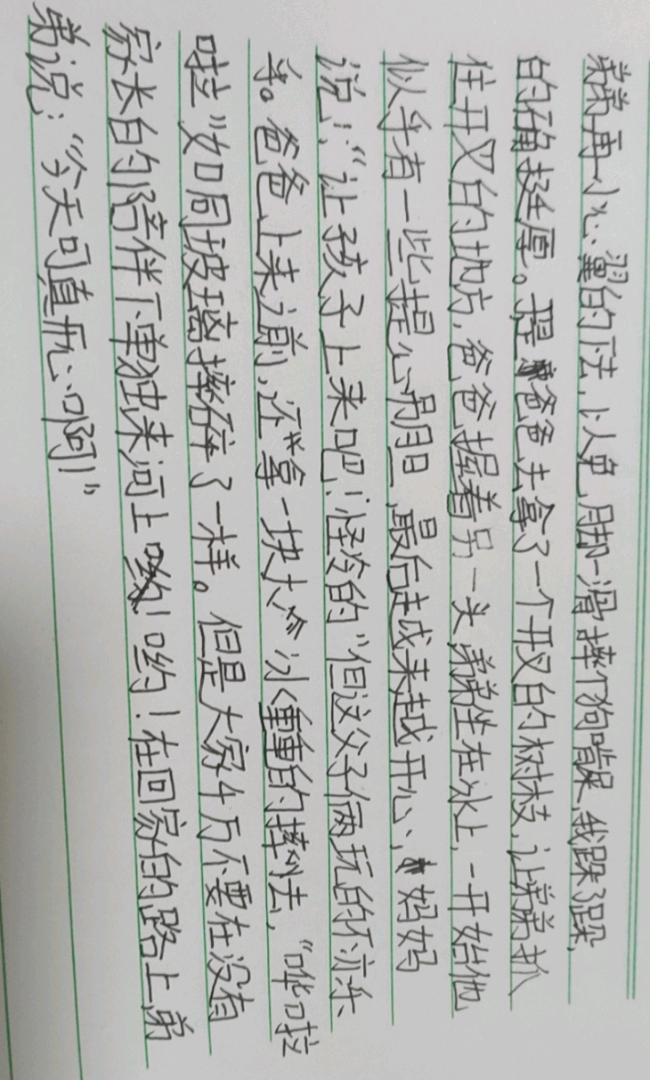 弟弟再小心翼的下去,以免脚一滑摔个狗啃屎,我跺了跺,
的确挺厚。爸爸去拿了一个开叉的树枝,让弟弟抓
住开叉的地方,爸爸握着另一头弟弟坐在冰上,一开始他
似乎有一些提心吊胆,最后越来越开心,妈妈
说:“让孩子上来吧!怪冷的”但这父子俩玩的不亦乐
乎。爸爸上来之前,还拿一块大冰重重的摔下去,“哗啦
啦”如同玻璃摔碎了一样。但是大家千万不要在没有
家长的陪伴下单独来河上哟!在回家的路上弟
弟说:“今天可真开心啊!”